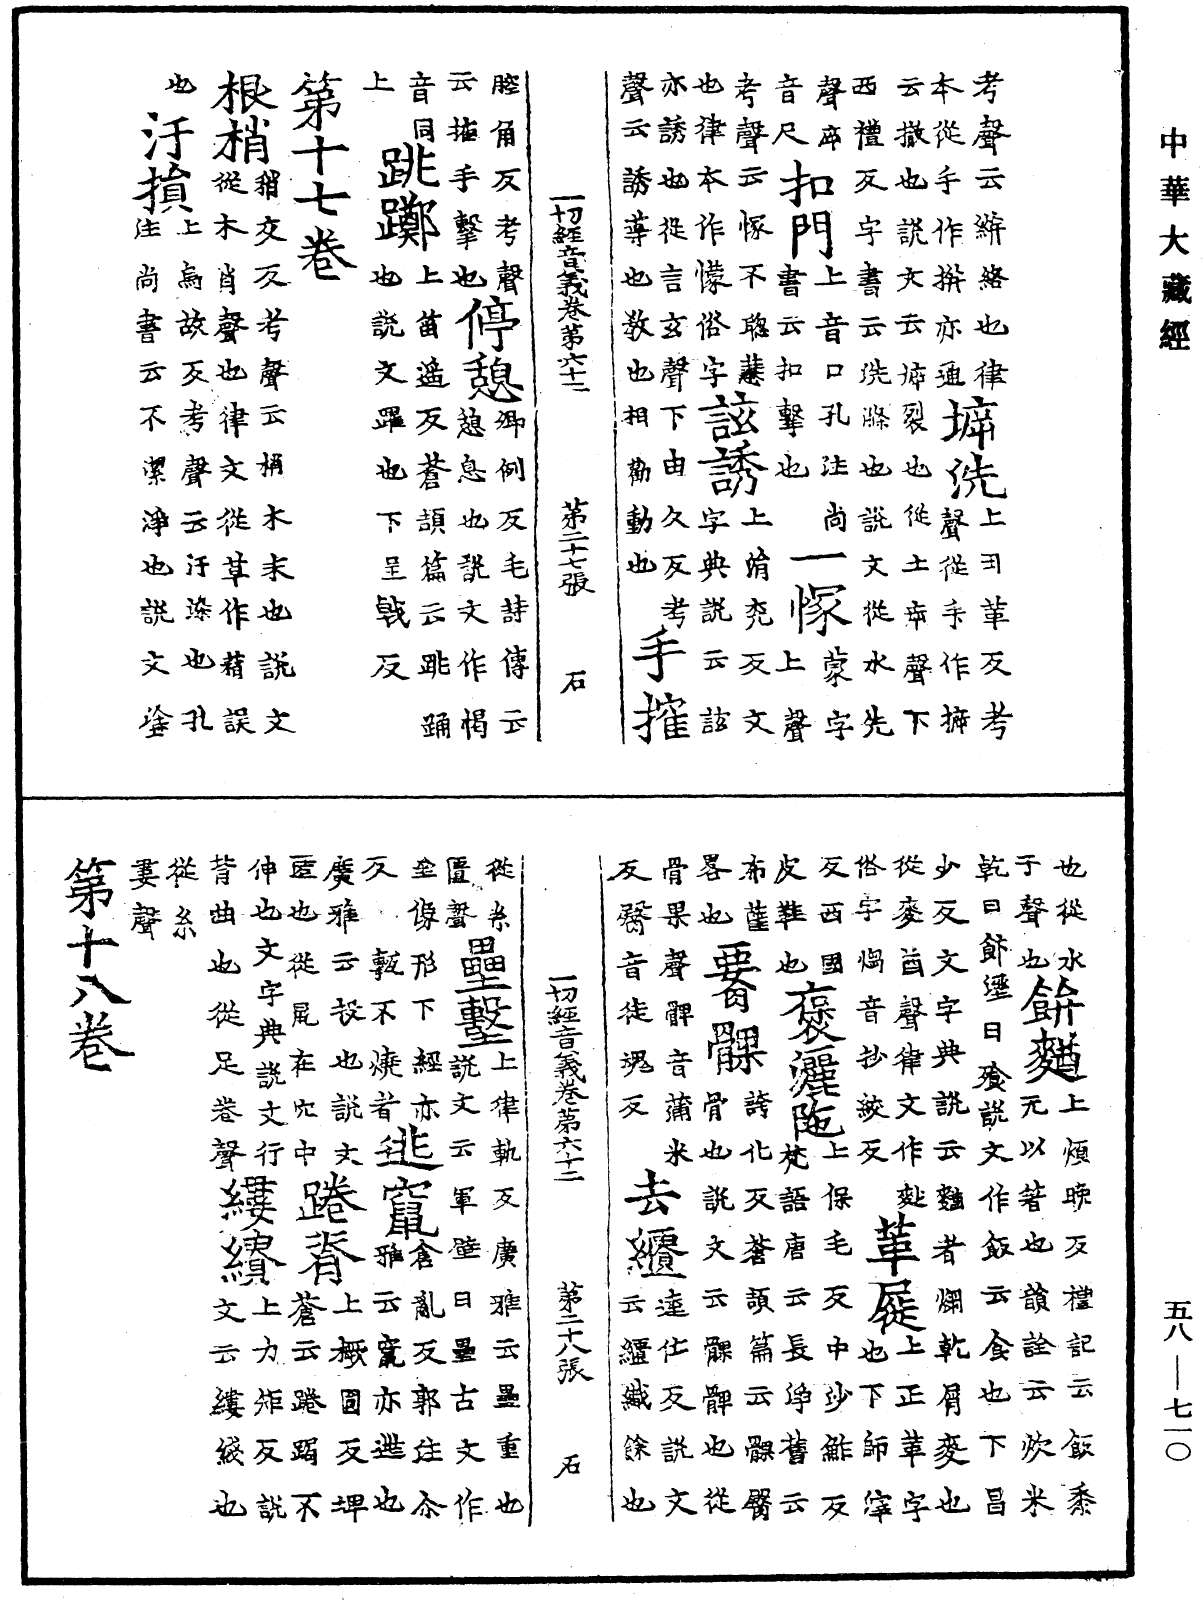 中華大藏經
考聲云擗絡也律
本從手作擗亦通
墲洗
上丑革反考
聲從手作擗
云撤也說文云墲裂也從土㡿聲下
西禮反字書云洗滌也說文從水先
聲
扣門
上音口孔注尚
書云扣擊也
一㥶
上蒙字
音
考聲云㥶不聰慧
也律本作懞俗字
詃誘
上涓兖反文
字典說云詃
亦誘也從言玄聲下由久反考
聲云誘導也教也相勸動也
手搉
一切經音義卷第六十二 第二十七張 石
腔角反考聲
云搉手擊也
停憩
卿例反毛詩傳云
憩息也說文作愒
音同
上
跳躑
上笛遥反蒼頡篇云跳踊
也說文躍也下呈戟反
第十七卷
根梢
稍交反考聲云梢木末也說文
從木肖聲也律文從草作藉誤
也
汙損
上烏故反考聲云汙染也孔
注尚書云不潔淨也說文塗
也從水
于聲也
餅麨
上煩晚反禮記云飯黍
无以著也韻詮云炊米
乾曰餅溼曰飱說文作飯云食也下昌
少反文字典說云麨者爛乾屑麥也
從麥酋聲律文作麨
俗字㶽音抄絞反
革屣
上正革字
也下師滓
反西國
皮鞋也
褒灑陁
上保毛反中沙鮓反
梵語唐云長淨舊云
布薩
畧也
䯊髁
誇化反蒼頡篇云髁臀
骨也說文云髁髀也從
骨果聲髀音蒲米
反臀音徒魂反
去纑
連仕反說文
云纑緎餘也
一切經音義卷第六十二 第二十八張 石
從糸
匱聲
壘墼
上律軌反廣雅云壘重也
說文云軍壁曰壘古文作
垒像形下經亦
反 墼不燒者
逃竄
倉亂反郭注尒
雅云竄亦逃也
廣雅云投也說文
匿也從鼠在穴中
踡脊
上橛圓反埤
蒼云踡跼不
伸也文字典說文行
背曲也從足卷聲
縷繢
上力矩反說
文云縷綫也
從糸
婁聲
第十八卷
五八—七一〇